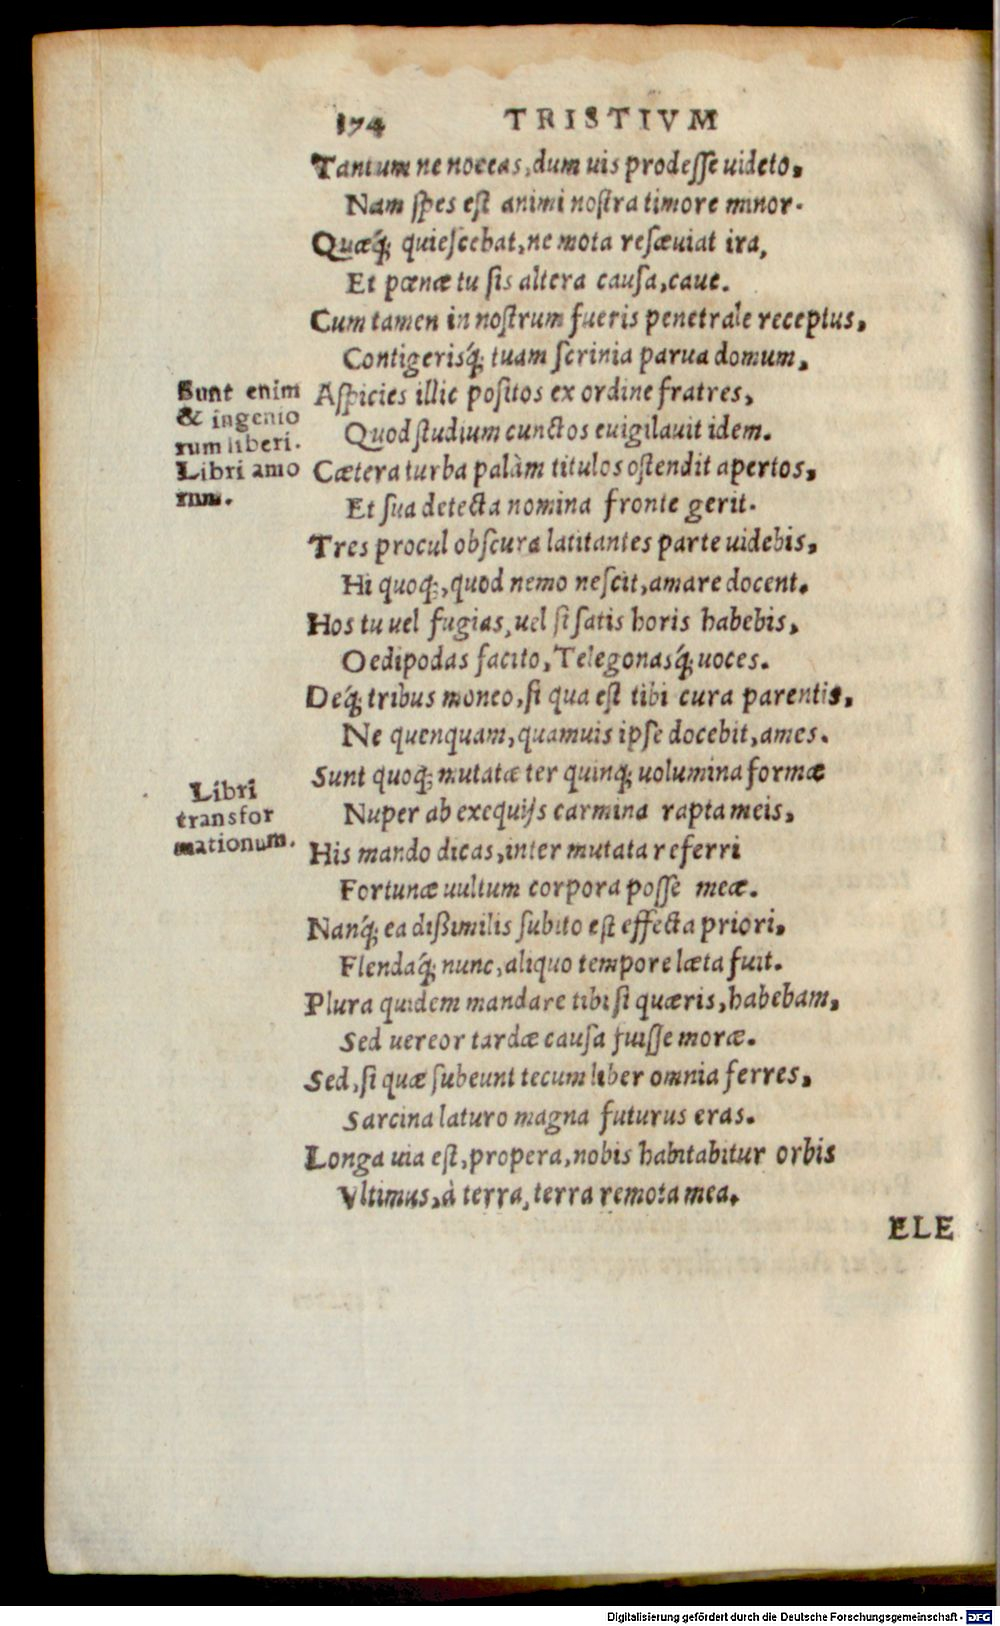 174 TRISTIVM
Tantum ne noceas, dum uis prodesse uideto,
Nam spes est animi nostra timore minor.
Quæq́; quiescebat, ne mota resæuiat ira,
Et pœnæ tu sis altera causa, caue.
Cum tamen in nostrum fueris penetrale receptus,
Contigerisq́; tuam scrinia parua domum,
Aspicies illic positos ex ordine fratres,
Quod studium cunctos euigilauit idem.
Cætera turba palàm titulos ostendit apertos,
Et sua detecta nomina fronte gerit.
Tres procul obscura latitantes parte uidebis,
Hi quoq;, quod nemo nescit, amare docent.
Hos tu uel fugias, uel si satis horis habebis,
Oedipodas facito, Telegonasq́; uoces.
Deq́; tribus moneo, si qua est tibi cura parentis,
Ne quenquam, quamuis ipse docebit, ames.
Sunt quoq; mutatæ ter quinq; uolumina formæ
Nuper ab exequijs carmina rapta meis,
His mando dicas, inter mutata referri
Fortunæ uultum corpora posse meæ.
Nanq́; ea dißimilis subito est effecta priori,
Flendaq́; nunc, aliquo tempore læta fuit.
Plura quidem mandare tibi si quæris, habebam,
Sed uereor tardæ causa fuisse moræ.
Sed, si quæ subeunt tecum liber omnia ferres,
Sarcina laturo magna futurus eras.
Longa uia est, propera, nobis habitabitur orbis
Vltimus, à terra, terra remota mea.
ELE
Sunt enim
& ingenio
rum liberi.
Libri amo
rum.
Libri
transfor
mationum.
Digitalisierung gefördert durch die Deutsche Forschungsgemeinschaft - DFG